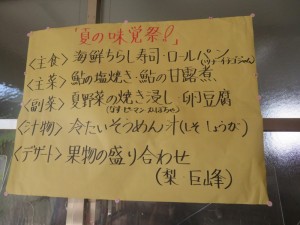 「夏の味覚祭り」
<主食> 海鮮ちらし寿司・ロールパン
<主菜> 鮎の塩焼き・鮎の甘露煮
<副菜> 夏野菜の焼き浸し 卵豆腐
(なす ピーマン かぼちゃ)
<汁物> 冷たいそうめん汁(しそ しょうが)
<デザート> 果物の盛り合わせ
(梨 巨峰)